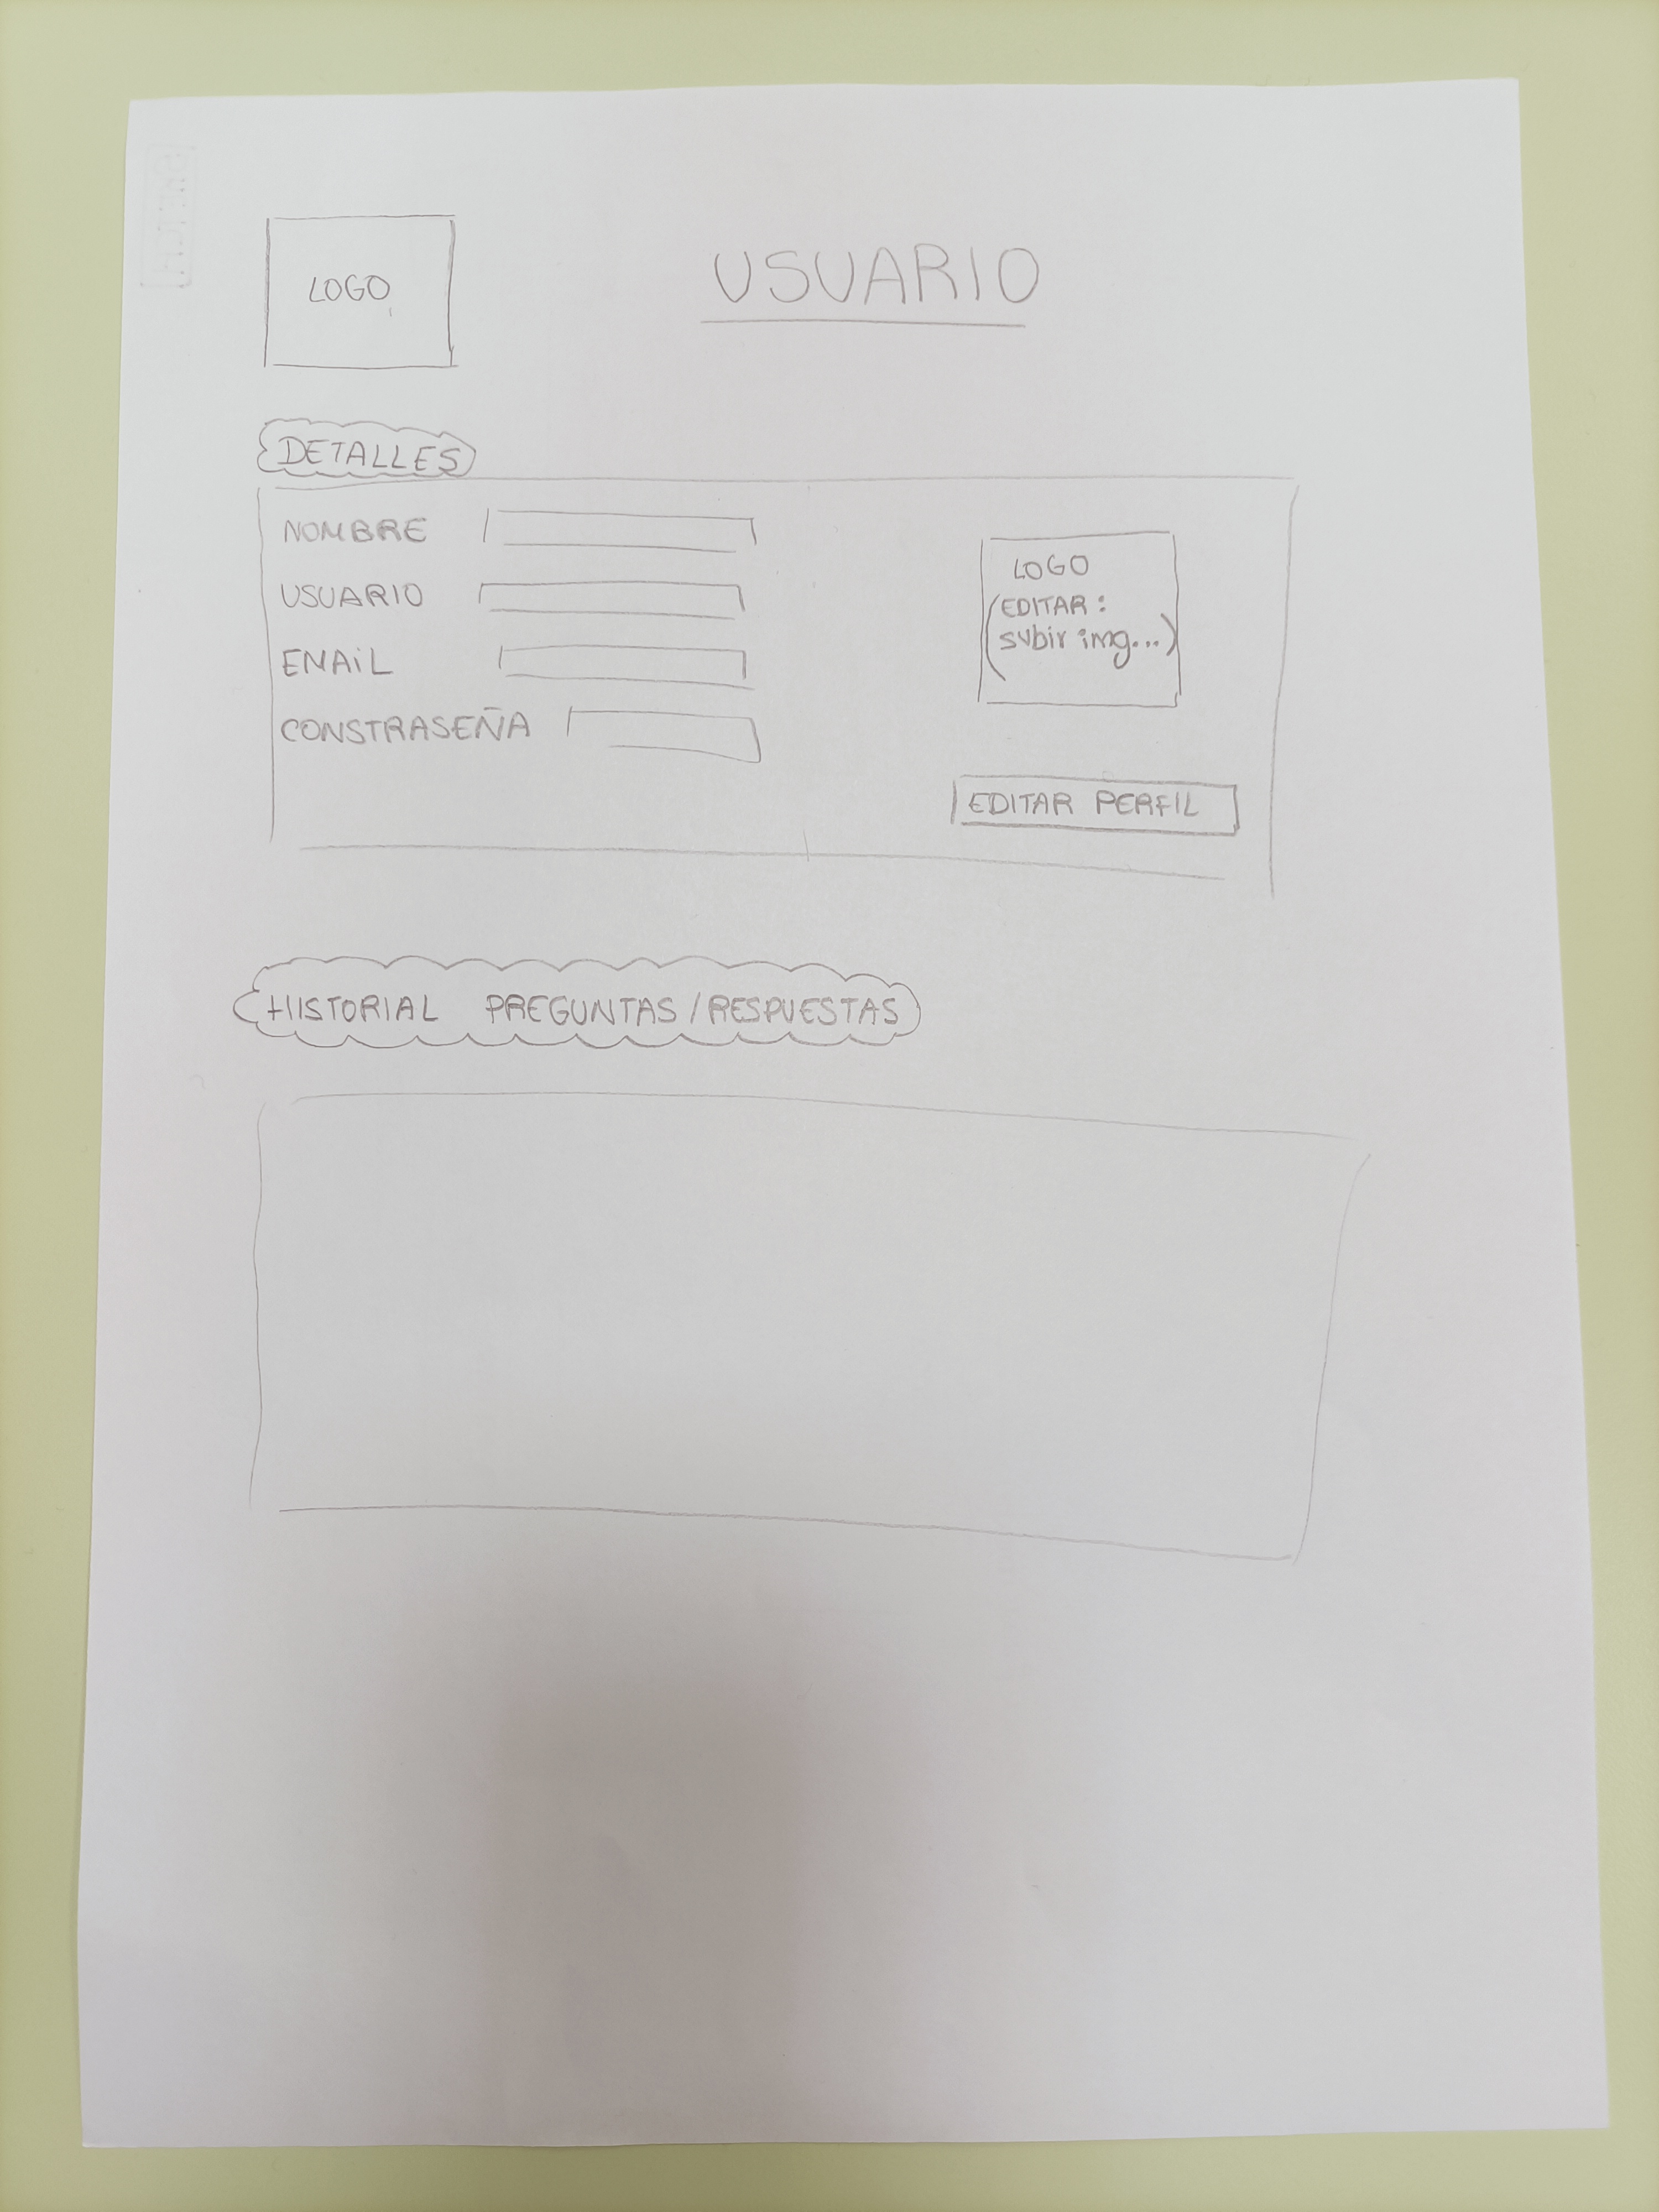 LOGO
USUARIO
DETALLES
NOMBRE
USUARIO
EMAIL
CONSTRASEÑA
LOGO
(EDITAR:
subir img...)
EDITAR PERFIL
HISTORIAL PREGUNTAS/RESPUESTAS